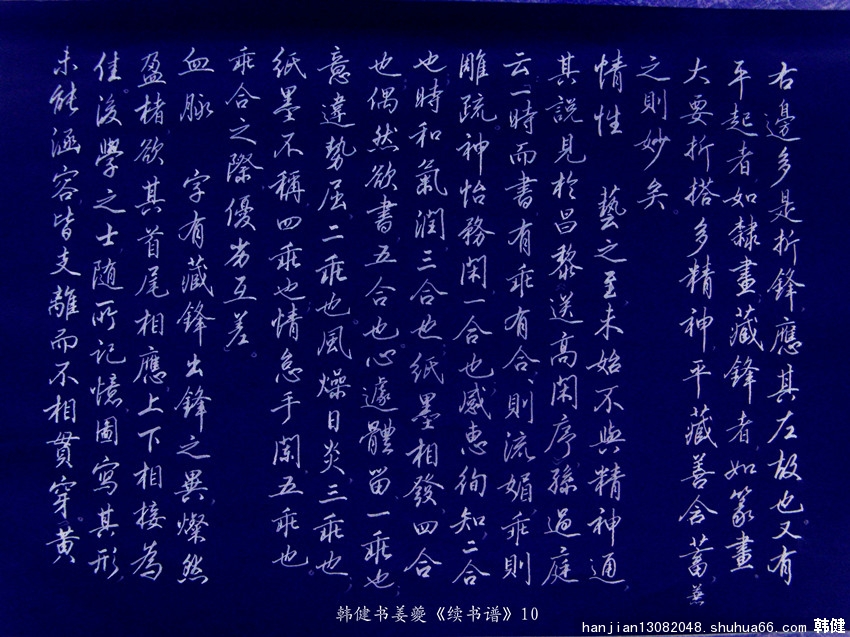 右邊多是折鋒應其左故也又有
平起者如隸畫藏鋒者如篆畫
大要折搭多精神平藏善含蓄兼
之則妙矣
情性 藝之至未始不與精神通
其說見於昌黎送高閑序孫過庭
云一時而書有乖有合則流媚乖則
雕疏神怡務閑一合也感惠徇知二合
也時和氣潤三合也紙墨相發四合
也偶然欲書五合也心遽體留一乖也
意違勢屈二乖也風燥日炎三乖也
紙墨不稱四乖也情怠手闌五乖也
乖合之際優劣互差
血脉 字有藏鋒出鋒之異燦然
盈楮欲其首尾相應上下相接為
佳後學之士隨所記憶圖寫其形
未能涵容皆支離而不相貫穿黃
韩健书姜夔《续书谱》10
hanjian13082048.shuhua66.com 韩健